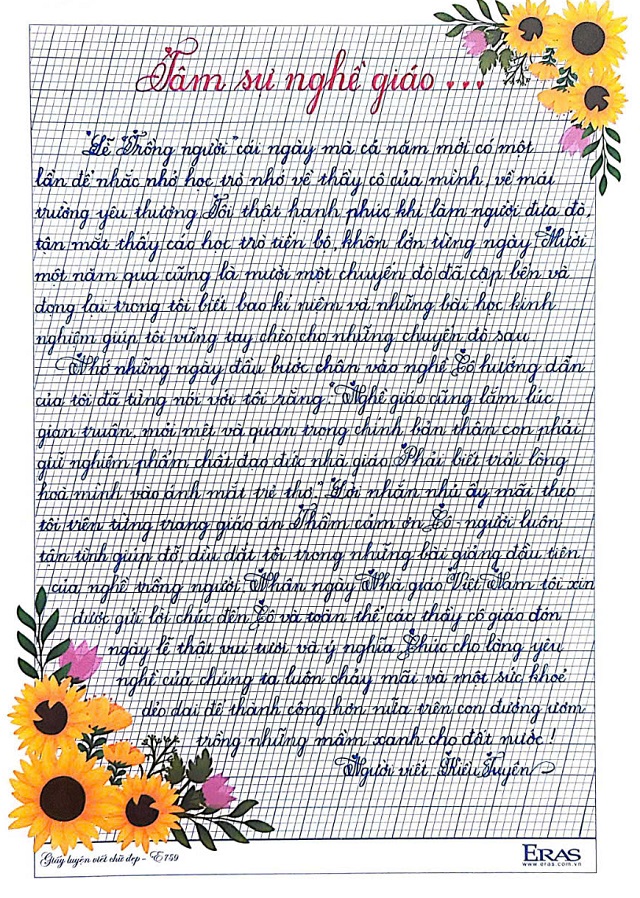 Tâm sự nghề giáo ...
"Lễ Trồng người" cái ngày mà cả năm mới có một
lần để nhắc nhở học trò nhớ về thầy cô của mình, về mái
trường yêu thương. Tôi thật hạnh phúc khi làm người đưa đò,
tận mắt thấy các học trò tiến bộ, khôn lớn từng ngày. Mười
một năm qua cũng là mười một chuyến đò đã cập bến và
đọng lại trong tôi biết bao kỉ niệm và những bài học kinh
nghiệm giúp tôi vững tay chèo cho những chuyến đò sau.
Nhớ những ngày đầu bước chân vào nghề Cô hướng dẫn
của tôi đã từng nói với tôi rằng: "Nghề giáo cũng lắm lúc
gian truân, mỏi mệt và quan trọng chính bản thân con phải
giữ nghiêm phẩm chất đạo đức nhà giáo. Phải biết trải lòng
hoà mình vào ánh mắt trẻ thơ." Lời nhắn nhủ ấy mãi theo
tôi trên từng trang giáo án. Thầm cảm ơn Cô - người luôn
tận tình giúp đỡ, dìu dắt tôi trong những bài giảng đầu tiên
của nghề trồng người. Nhân ngày Nhà giáo Việt Nam tôi xin
được gửi lời chúc đến Cô và toàn thể các thầy cô giáo đón
ngày lễ thật vui tươi và ý nghĩa. Chúc cho lòng yêu
nghề của chúng ta luôn cháy mãi và một sức khoẻ
dẻo dai để thành công hơn nữa trên con đường ươm
trồng những mầm xanh cho đất nước!
Người viết Kiều Tuyên
Giấy luyện viết chữ đẹp - E759
ERAS
www.eras.com.vn